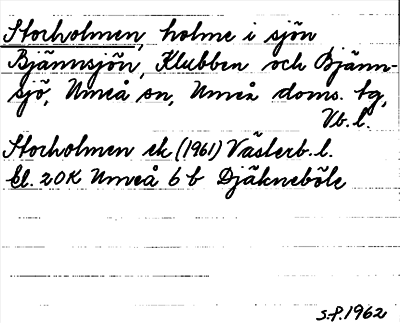 Storholmen, holme i sjön
Bjännsjön, Klubben och Bjänn-
sjö, Umeå sn, Umeå doms. tg,
Vb. l.
Storholmen ek (1961) Västerb. l.
bl. 20K Umeå 6 b Djäkneböle
S.P. 1962